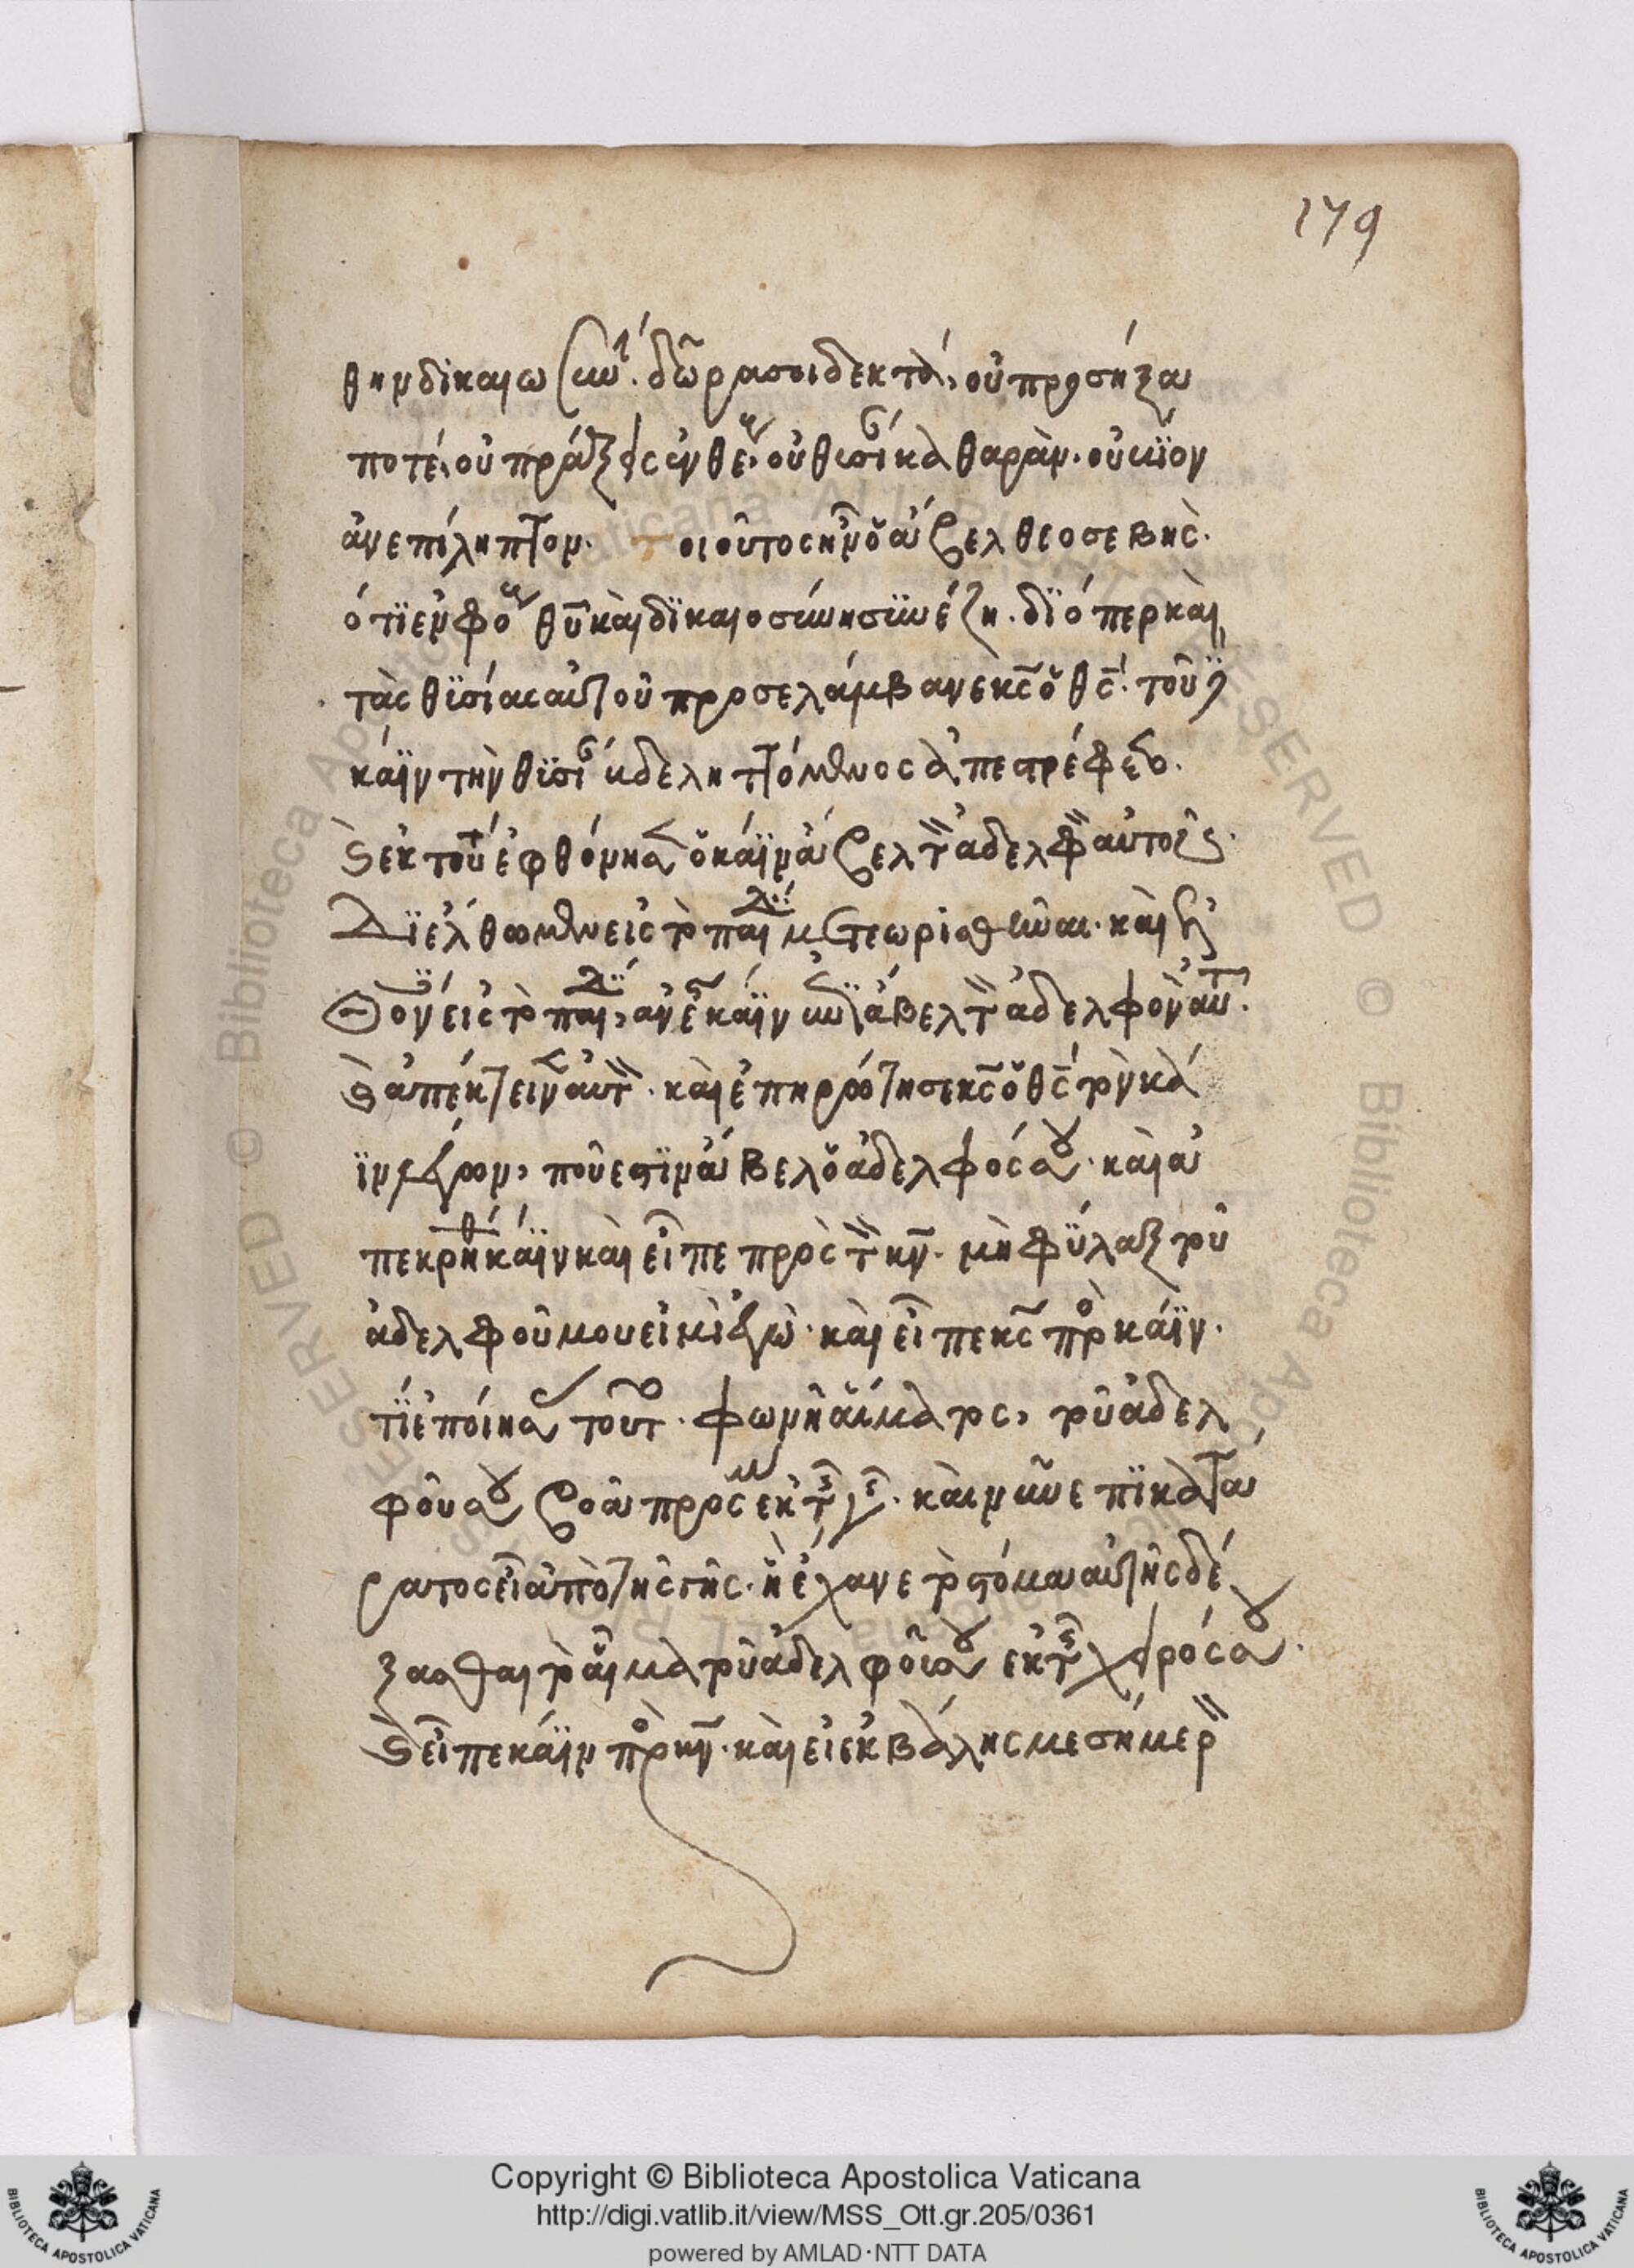 179
θην δικαιωσύν· δῶρά σοι δεκτὰ, οὐ προσῆξα
ποτέ, οὐ πράξεις ἐνθέους· οὐ θυσίαν καθαρὰν· οὐ βίον
ἀνεπίληπτον. τοιοῦτος ἦν ὁ ἄβελ θεοσεβὴς.
ὅτι ἐν φόβῳ θῦ καὶ δϊκαιοσύνη συνέζη. δϊόπερ καὶ
τὰς θϋσίας αὐτοῦ προσελάμβανε κς ὁ θς. τοῦ
κάϊν τὴν θϋσίαν βδελυττόμενος ἀπεστρέφετο.
καὶ ἐκ τούτου ἐφθόνησεν ὁ κάϊν ἄβελ τὸν ἀδελφὸν αὐτοῦ.
Δϊέλθωμεν εἰς τὸ πεδίον
ἐλθὼν εἰς τὸ πεδίον, ἀνέστη κάϊν ἐπὶ ἄβελ τὸν ἀδελφὸν αὐτοῦ.
καὶ ἀπέκτεινεν αὐτόν. καὶ ἐπηρώτησε κς ὁ θς τὸν κά
ϊν λέγων, ποῦ ἐστϊν ἄβελ ὁ ἀδελφός σου. καὶ ἀ
πεκρίθη κάϊν καὶ εἶπε πρὸς τὸν κν. μὴ φύλαξ τοῦ
ἀδελφοῦ μου εἰμὶ ἐγὼ. καὶ εἶπε κς πρὸς κάϊν.
τί ἐποίησας τοῦτο. φωνὴ αἵματος, τοῦ ἀδελ
φοῦ σου βοᾷ πρός με ἐκ τῆς γῆς. καὶ νῦν ἐπϊκατά
ρατος εἶ ἀπὸ τῆς γῆς. ἣ ἔχανε τὸ στόμα αὐτῆς δέ
ξασθαι τὸ αἷμα τοῦ ἀδελφοῦ σου ἐκ τῆς χειρός σου.
καὶ εἶπε κάϊν πρὸς κν. καὶ εἰ ἐκβάλης με σήμερον
Copyright © Biblioteca Apostolica Vaticana
http://digi.vatlib.it/view/MSS_Ott.gr.205/0361
powered by AMLAD·NTT DATA